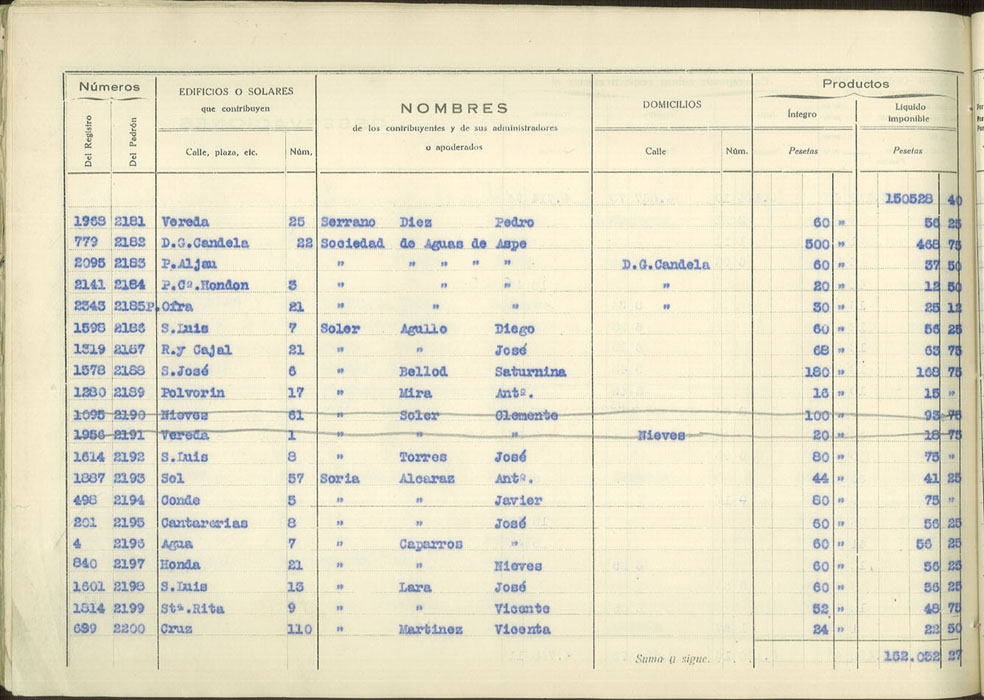 Números EDIFICIOS O SOLARES que contribuyen NOMBRES de los contribuyentes y de sus administradores o apoderados DOMICILIOS Productos
Del Registro Del Padrón Calle, plaza, etc. Núm. Calle Núm. Íntegro Pesetas Líquido imponible Pesetas
150528 40
1968 2181 Vereda 25 Serrano Diez Pedro 60 " 56 25
779 2182 D.G.Candela 22 Sociedad de Aguas de Aspe 500 " 468 75
2095 2183 P.Aljau " " " " " D.G.Candela 60 " 37 50
2141 2184 P.Cº.Hondon 3 " " " " 20 " 12 50
2343 2185 P.Ofra 21 " " " " 30 " 25 12
1598 2186 S.Luis 7 Soler Agullo Diego 60 " 56 25
1319 2187 R.y Cajal 21 " " José 68 " 63 75
1578 2188 S.José 6 " Bellod Saturnina 180 " 168 75
1280 2189 Polvorin 17 " Mira Antº. 16 " 15 "
1095 2190 Nieves 61 " Soler Clemente 100 " 93 75
1956 2191 Vereda 1 " " " Nieves 20 " 18 75
1614 2192 S.Luis 8 " Torres José 80 " 75 "
1887 2193 Sol 57 Soria Alcaraz Antº. 44 " 41 25
498 2194 Conde 5 " " Javier 80 " 75 "
201 2195 Cantarerias 8 " " José 60 " 56 25
4 2196 Agua 7 " Caparros " 60 " 56 25
840 2197 Honda 21 " " Nieves 60 " 56 25
1601 2198 S.Luis 13 " Lara José 60 " 56 25
1814 2199 Stª.Rita 9 " " Vicente 52 " 48 75
689 2200 Cruz 110 " Martinez Vicenta 24 " 22 50
Suma y sigue. 152.052 27